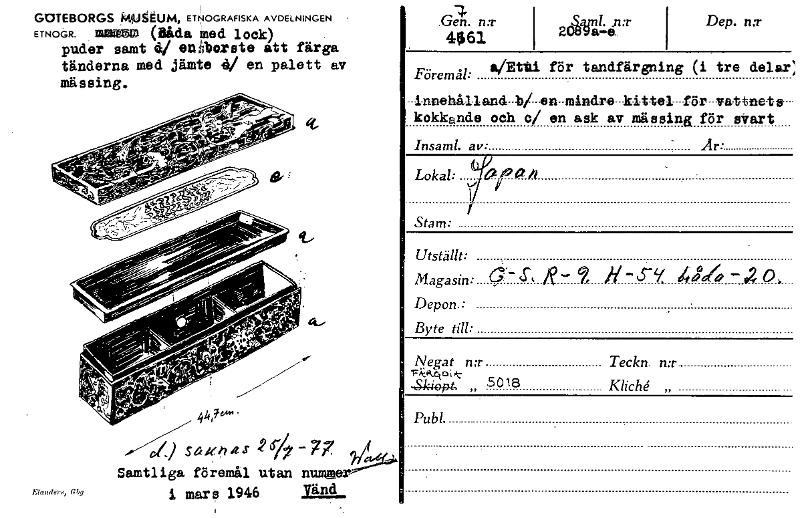 GÖTEBORGS MUSEUM, ETNOGRAFISKA AVDELNINGEN
ETNOGR. (Båda med lock)
puder samt d/ en borste att färga
tänderna med jämte e/ en palett av
mässing.
a
e
a
a
44,7 cm.
d.) saknas 25/7-77.
Samtliga föremål utan nummer
1 mars 1946 Vänd
Elanders, Gbg
Gen. n:r
7
4661
Saml. n:r
2089a-e
Dep. n:r
Föremål: a/Etui för tandfärgning (i tre delar)
innehålland b/ en mindre kittel för vattnets
kokkande och c/ en ask av mässing för svart
Insaml. av: År:
Lokal: Japan
Stam:
Utställt:
Magasin: G-S. R-9. H-54. Låda-20.
Depon.:
Byte till:
Negat n:r Teckn n:r
FÄRGDIA
Skiopt. „ 5018 Kliché „
Publ.